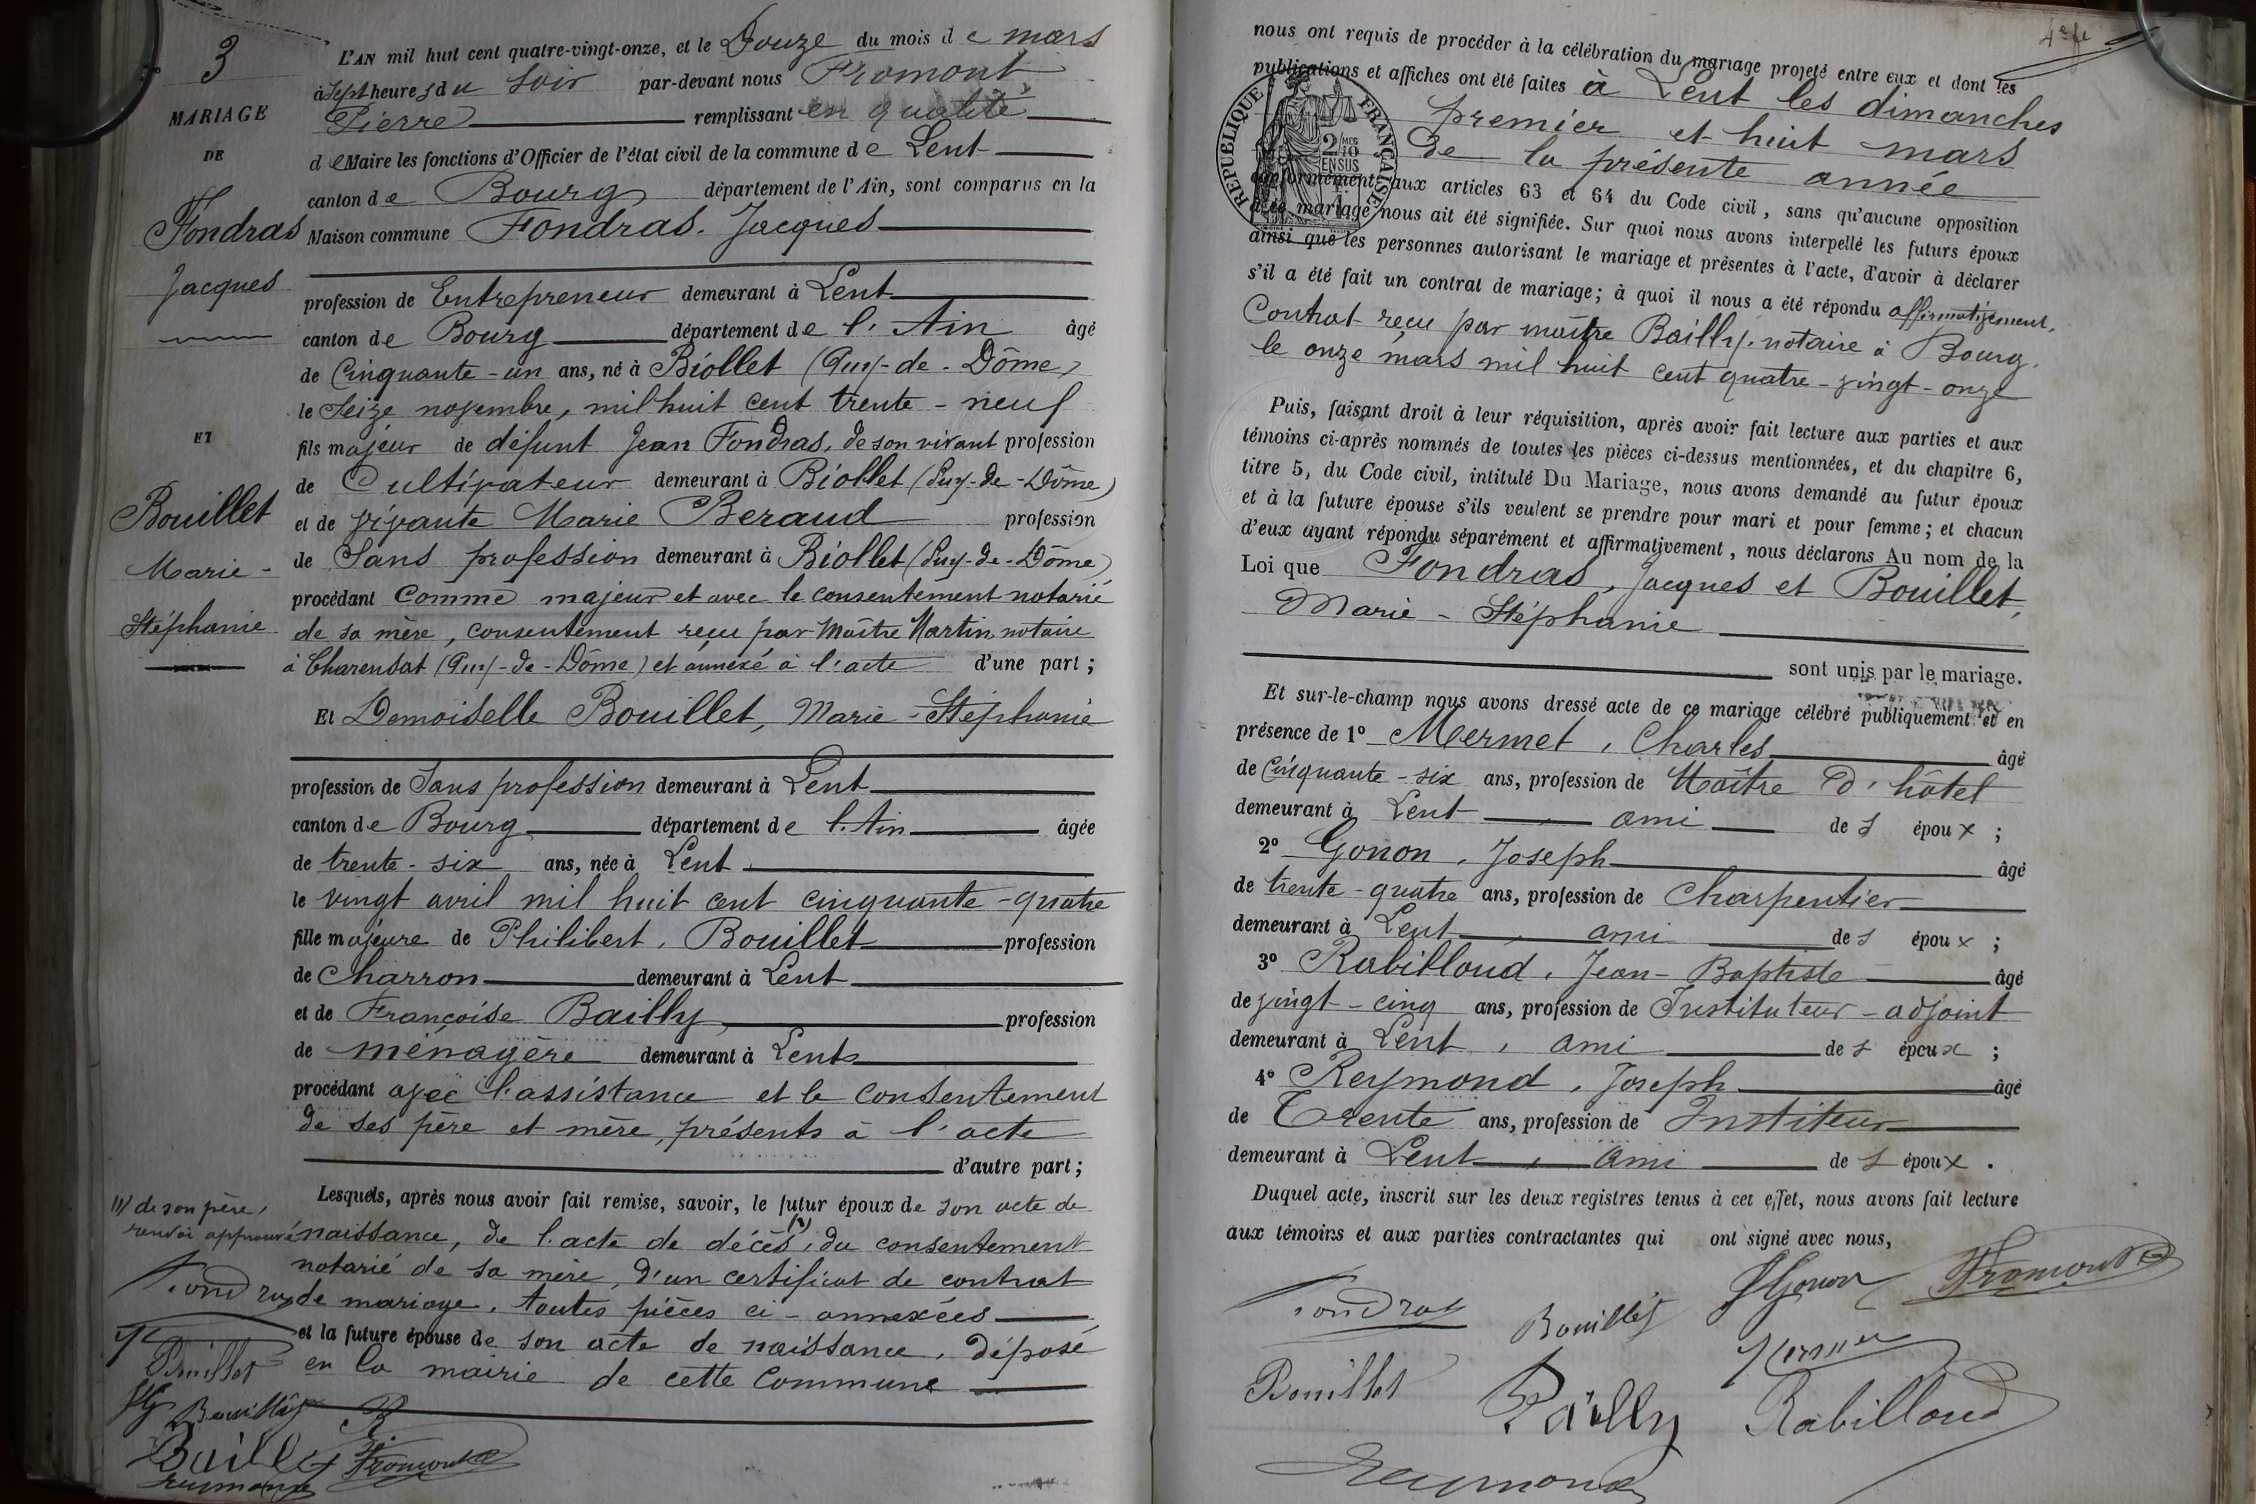 3
MARIAGE
DE
Fondras
Jacques
ET
Bouillet
Marie-
Stéphanie
L'AN mil huit cent quatre-vingt-onze, et le Douze du mois de mars
à Sept heures du soir par-devant nous Fromont
Pierre remplissant en qualité
de Maire les fonctions d'Officier de l'état civil de la commune de Lent
canton de Bourg département de l'Ain, sont comparus en la
Maison commune Fondras. Jacques
profession de Entrepreneur demeurant à Lent
canton de Bourg département de l'Ain âgé
de Cinquante-un ans, né à Biollet (Puy-de-Dôme)
le Seize novembre, mil huit cent trente-neuf
fils majeur de défunt Jean Fondras, de son vivant profession
de Cultivateur demeurant à Biollet (Puy-de-Dôme)
et de vivante Marie Beraud profession
de Sans profession demeurant à Biollet (Puy-de-Dôme)
procédant comme majeur et avec le consentement notarié
de sa mère, consentement reçu par Maître Martin, notaire
à Charensat (Puy-de-Dôme) et annexé à l'acte d'une part;
Et Demoiselle Bouillet, Marie-Stéphanie
profession de Sans profession demeurant à Lent
canton de Bourg département de l'Ain âgée
de trente-six ans, née à Lent
le vingt avril mil huit cent cinquante-quatre
fille majeure de Philibert, Bouillet profession
de Charron demeurant à Lent
et de Françoise Bailly profession
de ménagère demeurant à Lent
procédant avec l'assistance et le consentement
de ses père et mère, présents à l'acte
d'autre part;
Lesquels, après nous avoir fait remise, savoir, le futur époux de son acte de
naissance, de l'acte de décès (1), du consentement
notarié de sa mère, d'un certificat de contrat
de mariage, toutes pièces ci-annexées
et la future épouse de son acte de naissance, déposé
en la mairie de cette Commune
(1) de son père,
renvoi approuvé
Fondras
Bouillet
JG
Bouillet
R
Bailly
Fromont
Reymond
4e fe
nous ont requis de procéder à la célébration du mariage projeté entre eux et dont les
publications et affiches ont été faites à Lent les dimanches
premier et huit mars
de la présente année
conformément aux articles 63 et 64 du Code civil, sans qu'aucune opposition
à ce mariage nous ait été signifiée. Sur quoi nous avons interpellé les futurs époux
ainsi que les personnes autorisant le mariage et présentes à l'acte, d'avoir à déclarer
s'il a été fait un contrat de mariage; à quoi il nous a été répondu affirmativement.
Contrat reçu par maître Bailly, notaire à Bourg,
le onze mars mil huit cent quatre-vingt-onze
REPUBLIQUE FRANÇAISE
2/10
EN SUS
Puis, faisant droit à leur réquisition, après avoir fait lecture aux parties et aux
témoins ci-après nommés de toutes les pièces ci-dessus mentionnées, et du chapitre 6,
titre 5, du Code civil, intitulé Du Mariage, nous avons demandé au futur époux
et à la future épouse s'ils veulent se prendre pour mari et pour femme; et chacun
d'eux ayant répondu séparément et affirmativement, nous déclarons Au nom de la
Loi que Fondras, Jacques et Bouillet,
Marie-Stéphanie
sont unis par le mariage.
Et sur-le-champ nous avons dressé acte de ce mariage célébré publiquement et en
présence de 1o Mermet, Charles âgé
de Cinquante-six ans, profession de Maître d'hôtel
demeurant à Lent, ami des époux;
2o Gonon, Joseph âgé
de trente-quatre ans, profession de Charpentier
demeurant à Lent, ami des époux;
3o Rabilloud, Jean-Baptiste âgé
de vingt-cinq ans, profession de Instituteur-adjoint
demeurant à Lent, ami des époux;
4o Reymond, Joseph âgé
de Trente ans, profession de Institeur
demeurant à Lent, ami des époux.
Duquel acte, inscrit sur les deux registres tenus à cet effet, nous avons fait lecture
aux témoins et aux parties contractantes qui ont signé avec nous,
Fondras Bouillet JGonon Fromont
Mermet
Bouillet Bailly Rabilloud
Reymond